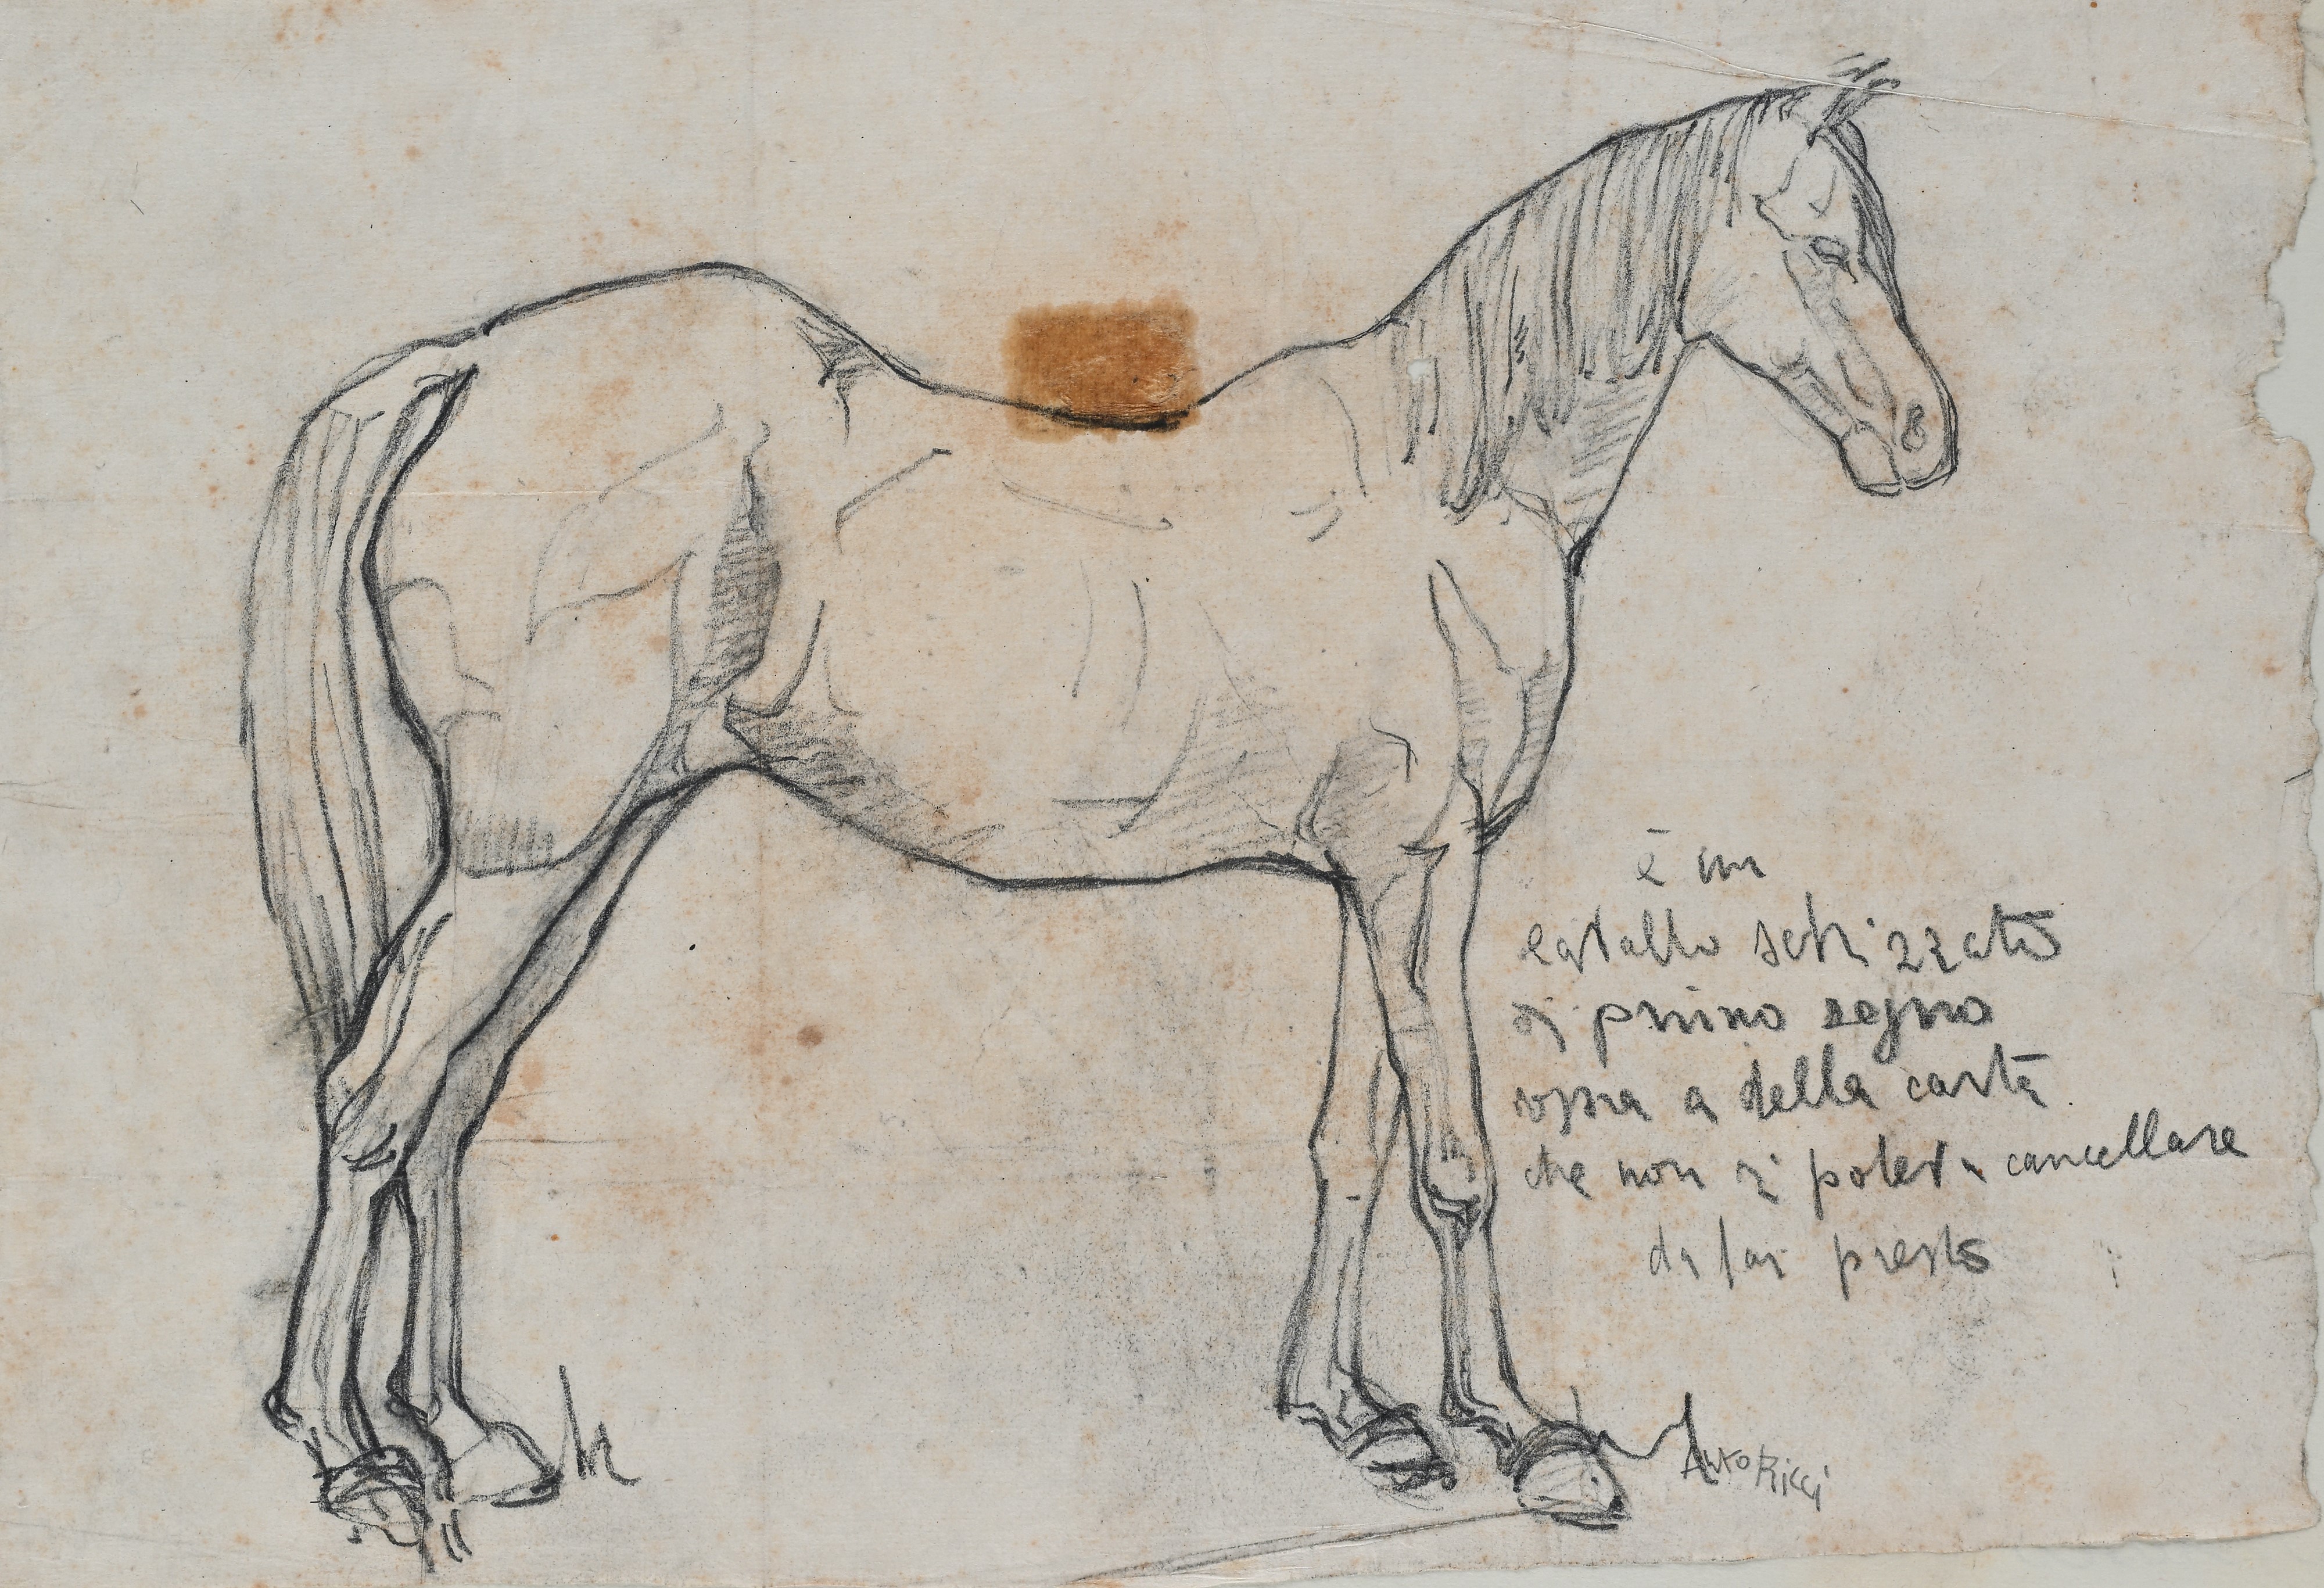 è un
cavallo schizzato
di primo segno
sopra a della carta
che non si poteva cancellare
da far presto
Anto Ricci